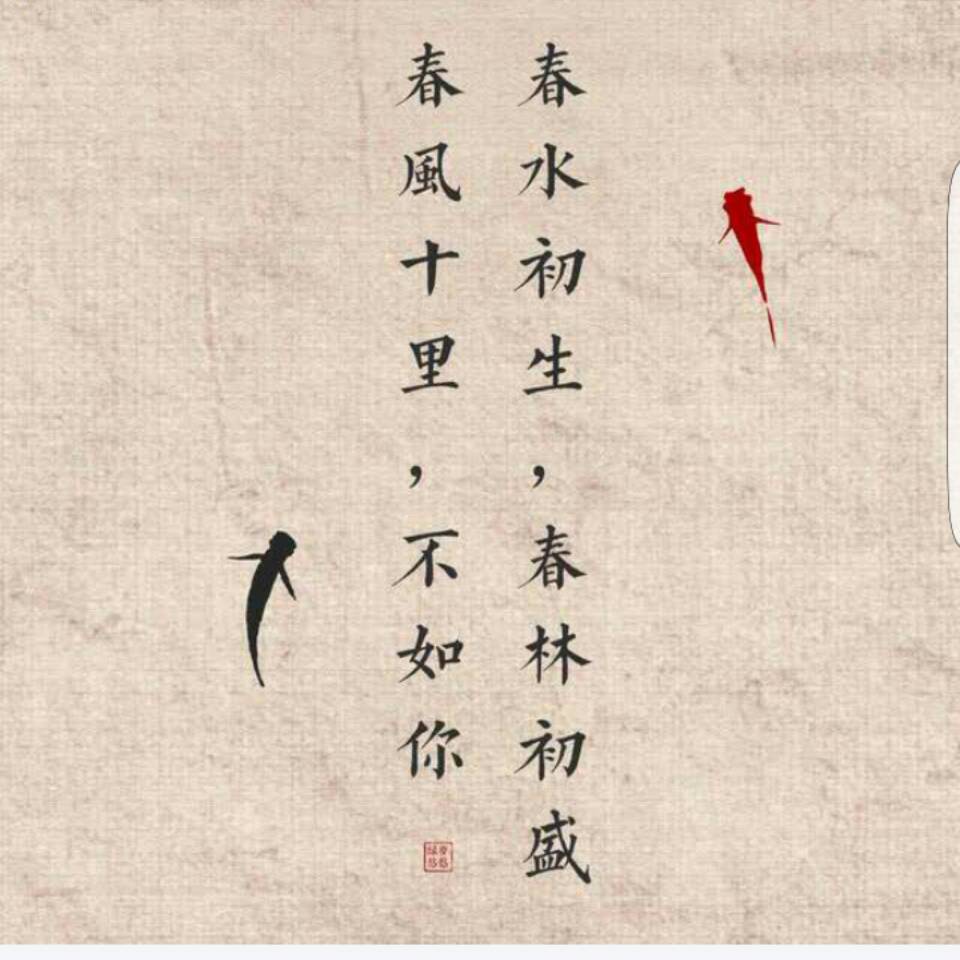 春水初生，春林初盛
春風十里，不如你